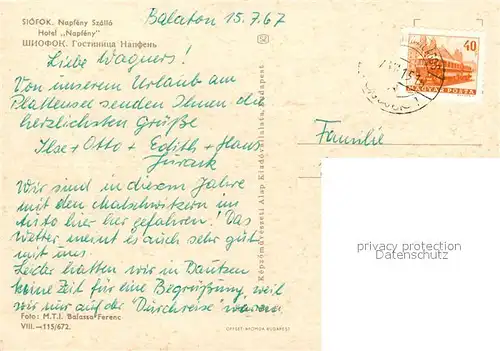 SIÓFOK. Napfény Szálló
Hotel „Napfény"
ШИОФОК. Гостиница Напфень
Balaton 15.7.67
Liebe Wagners!
Von unserem Urlaub am
Plattensee senden Ihnen die
herzlichsten Grüße
Ilse + Otto + Edith + Hans
Wir sind in diesem Jahre
mit den Malschwitzern im
Auto hier her gefahren! Das
Wetter meint es auch sehr gut
mit uns.
Leider hatten wir in Bautzen
keine Zeit für eine Begrüßung, weil
wir nur auf der "Durchreise" waren.
Foto: M.T.I. Balassa Ferenc
VIII.—115/672.
Képzőművészeti Alap Kiadóvállalata, Budapest
OFFSET-NYOMDA BUDAPEST
40
MAGYAR POSTA
Familie
privacy protection
Datenschutz